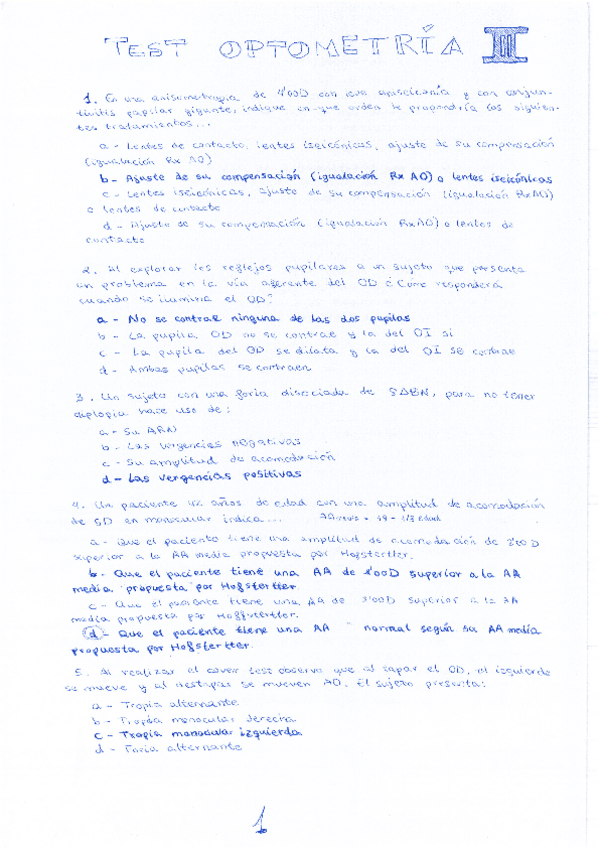 TEST OPTOMETRÍA III
1. En una anisometropía de 4'00D con una aniseiconía y con conjun-
tivitis papilar gigante, indique en que orden le propondría los siguien-
tes tratamientos...
a - Lentes de contacto, lentes iseicónicas, ajuste de su compensación
(igualación Rx AO)
b - Ajuste de su compensación (igualación Rx AO) o lentes iseicónicas
c - Lentes iseicónicas, ajuste de su compensación (igualación RxAO)
o lentes de contacto
d - Ajuste de su compensación (igualación RxAO) o lentes de
contacto
2. Al explorar los reflejos pupilares a un sujeto que presenta
un problema en la vía aferente del OD ¿Como responderá
cuando se ilumina el OD?
a - No se contrae ninguna de las dos pupilas
b - La pupila OD no se contrae y la del OI si
c - La pupila del OD se dilata y la del OI se contrae
d - Ambas pupilas se contraen
3. Un sujeto con una foria disociada de 5ΔBN, para no tener
diplopia hace uso de:
a - Su ARN
b - Las vergencias negativas
c - Su amplitud de acomodación
d - Las vergencias positivas
4. Un paciente 42 años de edad con una amplitud de acomodación
de 5D en monocular indica...
a - Que el paciente tiene una amplitud de acomodación de D
superior a la AA media propuesta por Hofstertter.
b - Que el paciente tiene una AA de 1'00D superior a la AA
media propuesta por Hofstertter
c - Que el paciente tiene una AA de D superior a la AA
media propuesta por Hofstertter.
d - Que el paciente tiene una AA normal según su AA media
propuesta por Hofstertter.
5. Al realizar el cover test observa que al tapar el OD, el izquierdo
se mueve y al destapar se mueven AO. El sujeto presenta:
a - Tropia alternante
b - Tropia monocular derecha
c - Tropia monocular izquierda
d - Foria alternante
1